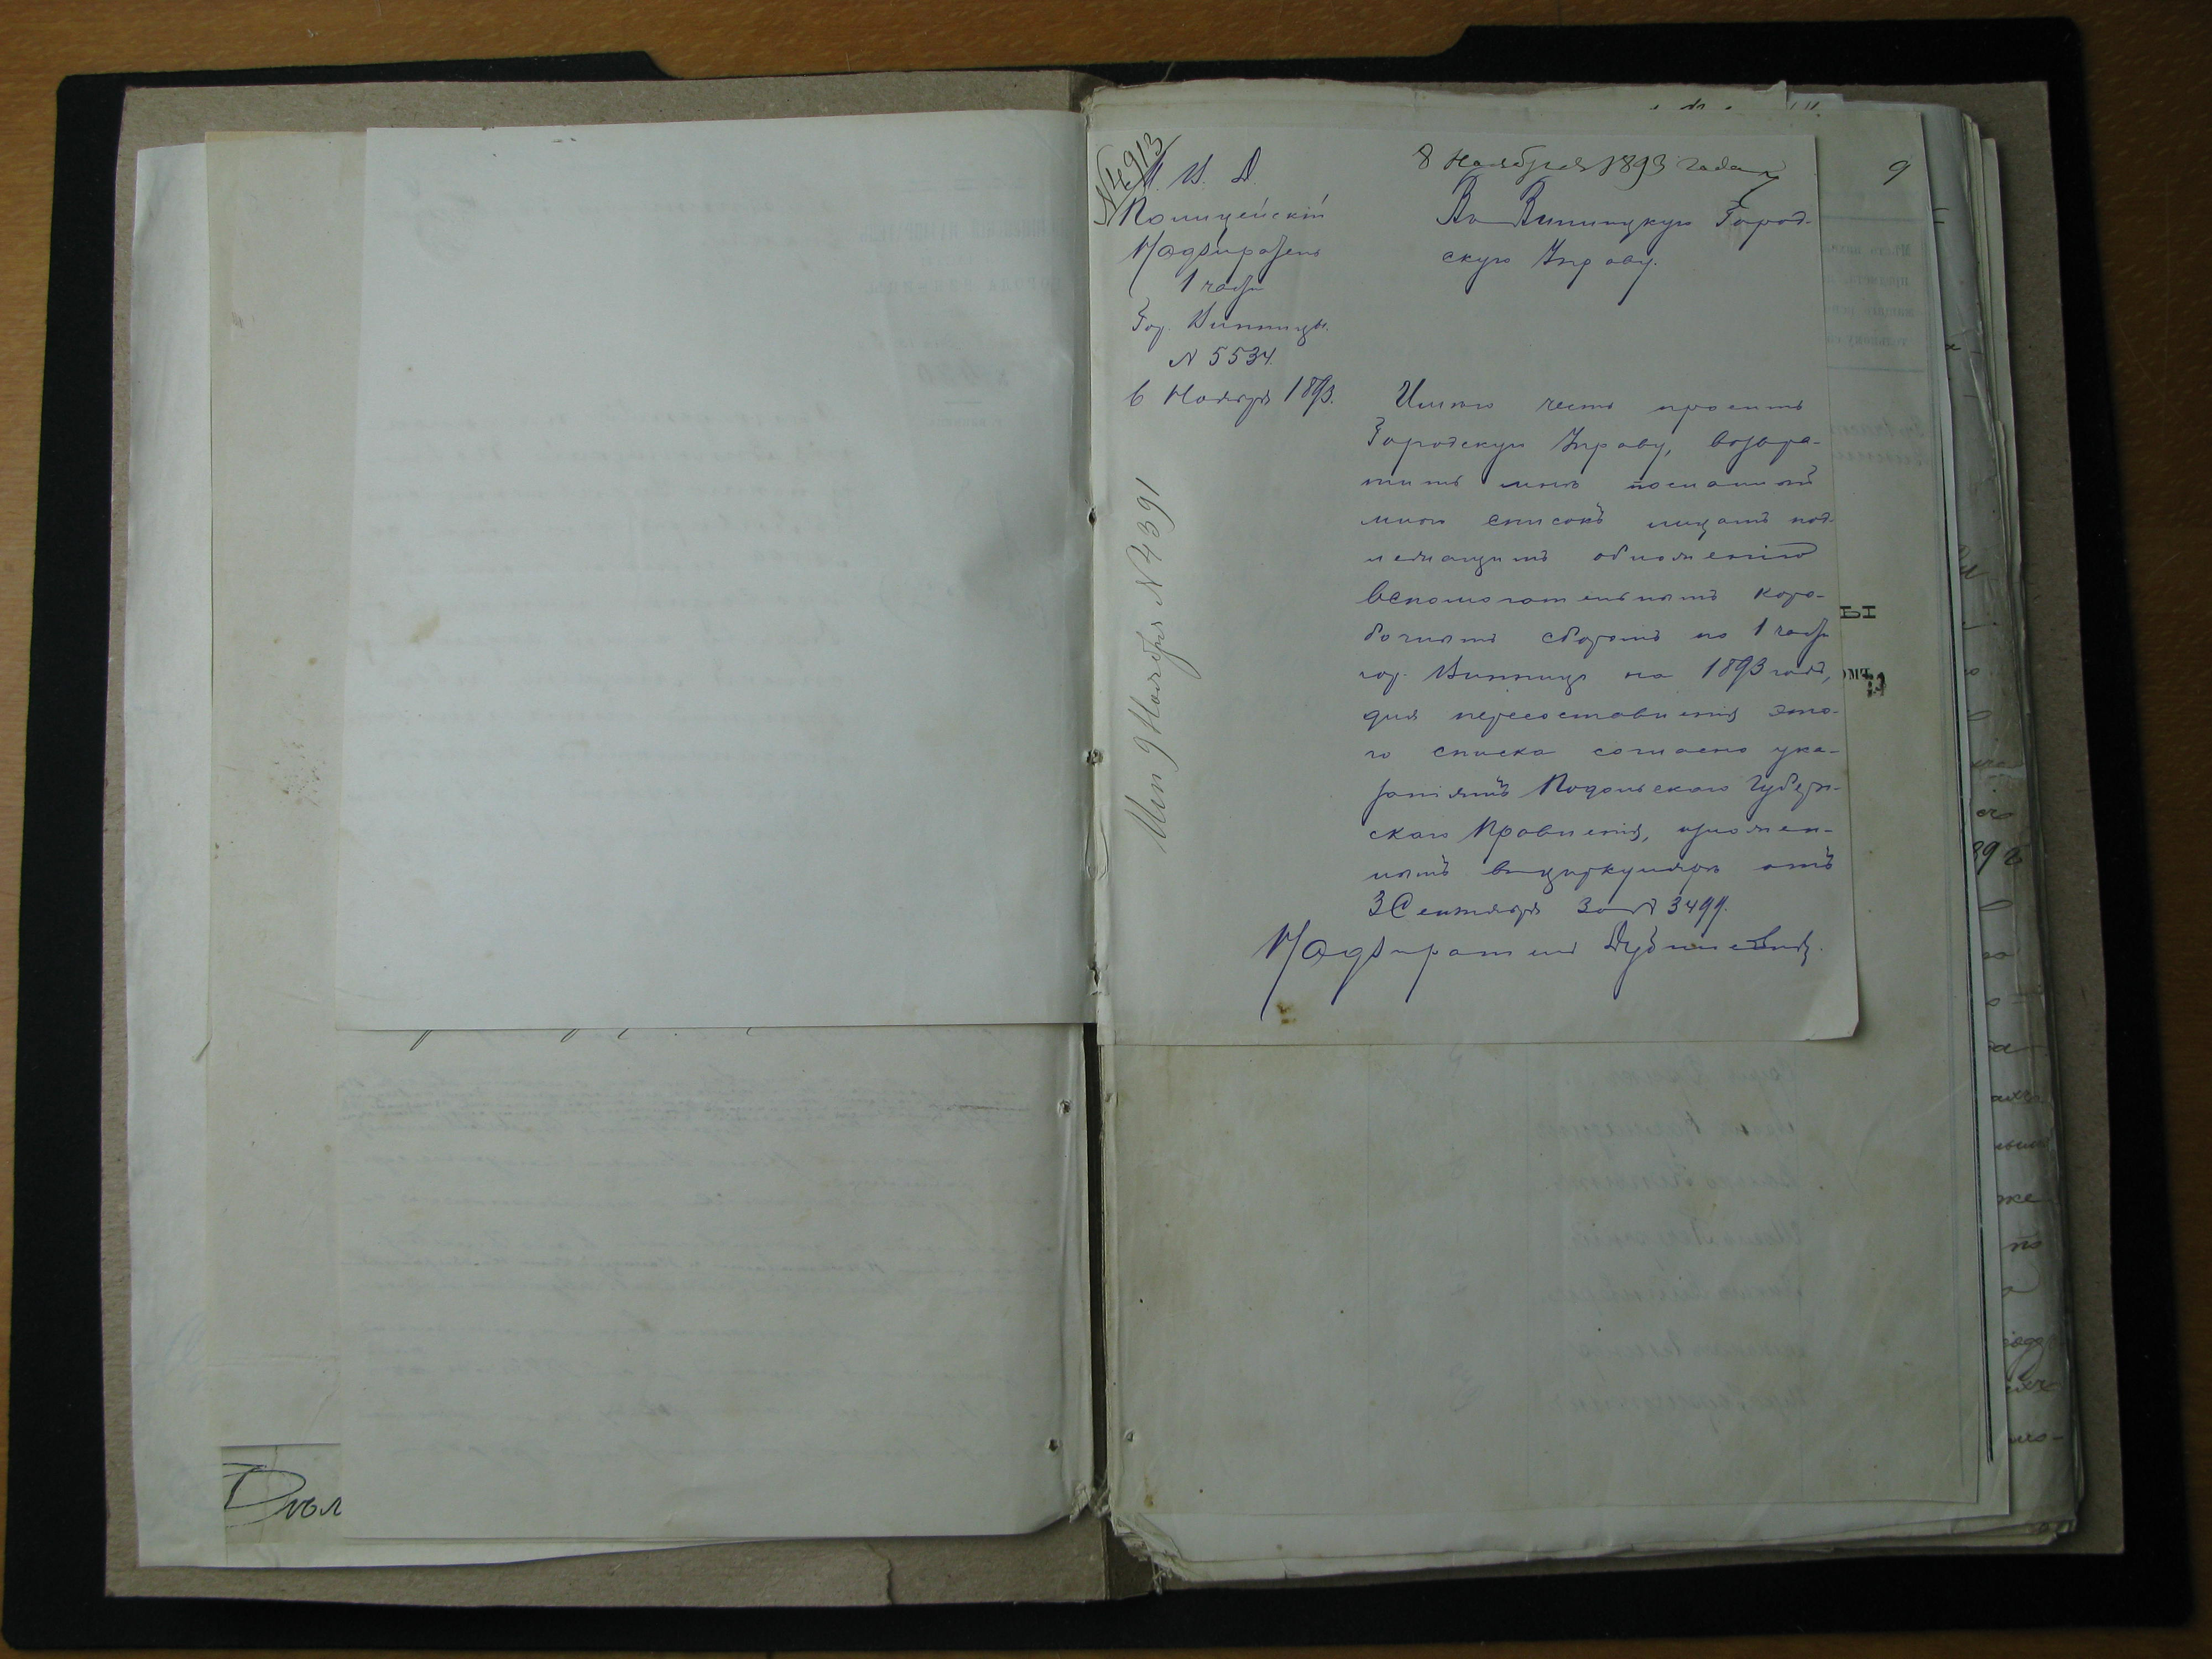 N 4913
М. В. Д.
Полицейскій
Надзиратель
1 части
Гор. Винницы.
N 5534.
6 Ноября 1893.
8 Ноября 1893 года
9
Въ Винницкую Город-
скую Управу.
Имѣю честь просить
Городскую Управу, возвра-
тить мнѣ посланный
мною списокъ лицамъ под-
лежащимъ обложенію
вспомогательнымъ коро-
бочнымъ сборомъ по 1 части
гор. Винницы на 1893 годъ,
для пересоставленія это-
го списка согласно ука-
заніямъ Подольскаго Губерн-
скаго Правленія, изложен-
нымъ въ циркулярѣ отъ
3 Сентября за N 3499.
Надзиратель
Исп 9 Ноября N 4391
Дѣл